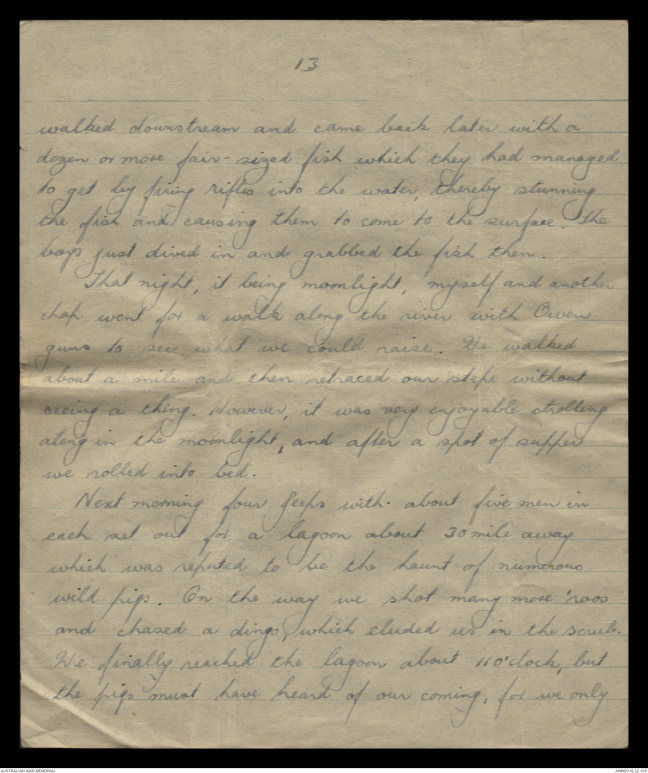 13
walked downstream and came back later with a
dozen or more fair-sized fish which they had managed
to get by firing rifles into the water, thereby stunning
the fish and causing them to come to the surface. The
boys just dived in and grabbed the fish then.
That night, it being moonlight, myself and another
chap went for a walk along the river with Owen
guns to see what we could raise. We walked
about a mile and then retraced our steps without
seeing a thing. However, it was very enjoyable strolling
along in the moonlight, and after a spot of supper
we rolled into bed.
Next morning four jeeps with about five men in
each set out for a lagoon about 30 mile away
which was reputed to be the haunt of numerous
wild pigs. On the way we shot many more 'roos
and chased a dingo which eluded us in the scrub.
We finally reached the lagoon about 11 o'clock, but
the pigs must have heard of our coming, for we only
AUSTRALIAN WAR MEMORIAL